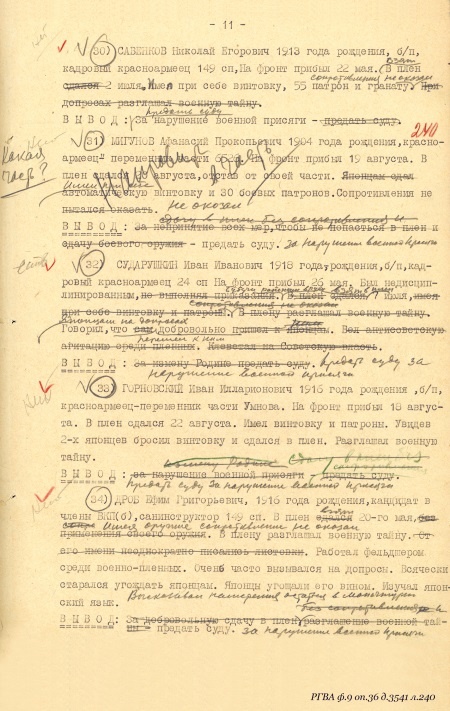 - 11 -
30) САВЕНКОВ Николай Егорович 1913 года рождения, б/п,
кадровый красноармеец 149 сп, На фронт прибыл 22 мая. В плен
взят
сопротивления не оказал
сдался 2 июля, Имел при себе винтовку, 55 патрон и гранату. При
допросах разглашал военную тайну.
предать суду
ВЫВОД: За нарушение военной присяги - предать суду.
240
Какая часть?
31) МИГУНОВ Афанасий Прокопьевич 1904 года рождения, красно-
армеец переменник части На фронт прибыл 19 августа. В
плен сдался августа, отстав от своей части. Японцам сдал
автоматическую винтовку и 30 боевых патронов. Сопротивления не
пытался оказать.
не оказал
сдачу в плен без сопротивления и
ВЫВОД: За непринятие всех мер, чтобы не попасться в плен и
сдачу боевого оружия - предать суду. За нарушение военной присяги
32) СУДАРУШКИН Иван Иванович 1918 года рождения, б/п, кад-
ровый красноармеец 24 сп На фронт прибыл 26 мая. Был недисцип-
линированным, не выполнял приказаний. В плен сдался июля, имея
взят в плен
сопротивления не оказал
при себе винтовку и патроны. В плену разглашал военную тайну.
Говорил, что сам добровольно пришел к японцам. Вел антисоветскую
агитацию среди пленных. Клеветал на Советскую власть.
ВЫВОД: За измену Родине предать суду. Предать суду за
нарушение военной присяги
33) ГОРНОВСКИЙ Иван Илларионович 1916 года рождения, б/п,
красноармеец-переменник части Умнова. На фронт прибыл 18 авгус-
та. В плен сдался 22 августа. Имел винтовку и патроны. Увидев
2-х японцев бросил винтовку и сдался в плен. Разглашал военную
тайну.
измену Родине
ВЫВОД: За нарушение военной присяги - предать суду.
Предать суду за нарушение военной присяги
34) ДРОБ Ефим Григорьевич, 1916 года рождения, кандидат в
члены ВКП(б), санинструктор 149 сп. В плен сдался 20-го мая, без
взят
Имея оружие сопротивление не оказал
применения своего оружия. В плену разглашал военную тайну. От
его имени неоднократно писались листовки. Работал фельдшером
среди военно-пленных. Очень часто вызывался на допросы. Всячески
старался угождать японцам. Японцы угощали его вином. Изучал япон-
ский язык.
Высказывал намерения остаться в Манчжурии
без сопротивления и
ВЫВОД: За добровольную сдачу в плен разглашение военной тай-
ны - предать суду. за нарушение военной присяги
РГВА ф.9 оп.36 д.3541 л.240